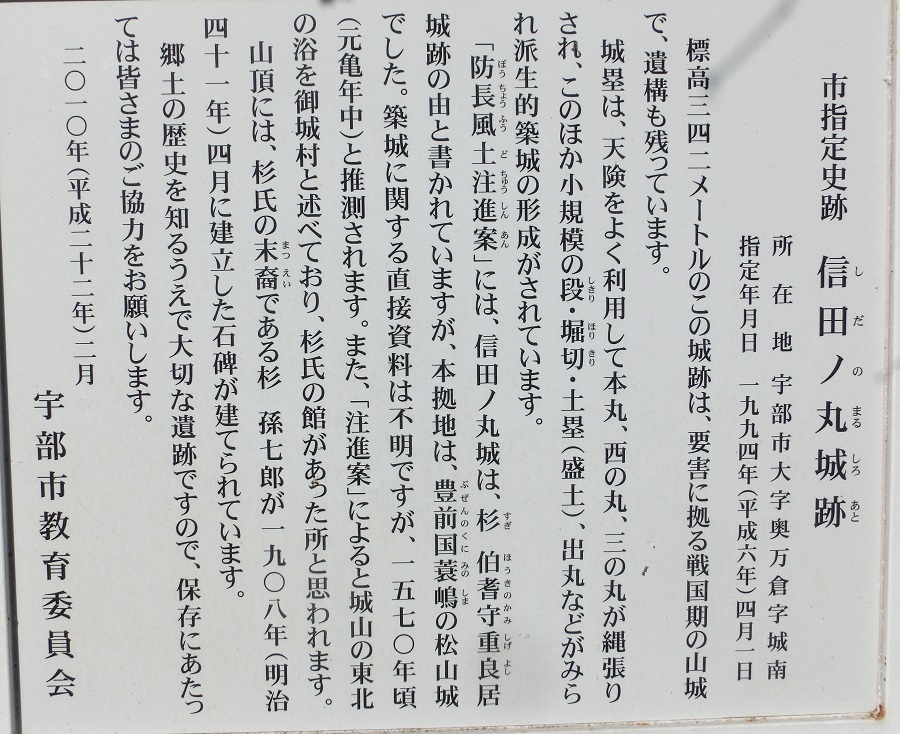 市指定史跡　信田ノ丸城跡
所在地　宇部市大字奥万倉字城南
指定年月日　一九九四年(平成六年)四月一日
標高三四二メートルのこの城跡は、要害に拠る戦国期の山城
で、遺構も残っています。
城塁は、天険をよく利用して本丸、西の丸、三の丸が縄張り
され、このほか小規模の段・堀切・土塁(盛土)、出丸などがみら
れ派生的築城の形成がされています。
「防長風土注進案」には、信田ノ丸城は、杉　伯耆守重良居
城跡の由と書かれていますが、本拠地は、豊前国蓑嶋の松山城
でした。築城に関する直接資料は不明ですが、一五七〇年頃
(元亀年中)と推測されます。また、「注進案」によると城山の東北
の浴を御城村と述べており、杉氏の館があった所と思われます。
山頂には、杉氏の末裔である杉　孫七郎が一九〇八年(明治
四十一年)四月に建立した石碑が建てられています。
郷土の歴史を知るうえで大切な遺跡ですので、保存にあたっ
ては皆さまのご協力をお願いします。
二〇一〇年(平成二十二年)二月
宇部市教育委員会